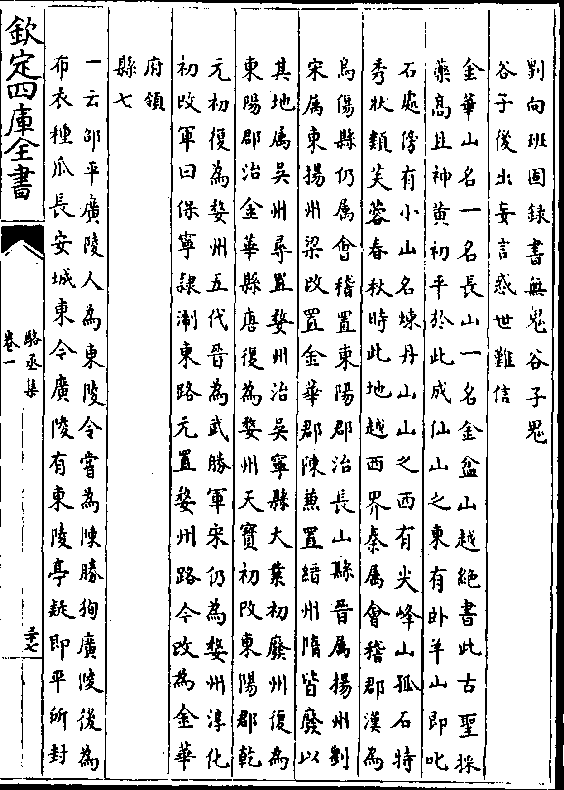 劉向班固録書無鬼谷子鬼
谷子後出妄言惑世難信
金華山名一名長山一名金盆山越絶書此古聖採
藥髙且神黄初平於此成仙山之東有卧羊山即叱
石處傍有小山名煉丹山山之西有尖峰山孤石特
秀狀類芙蓉春秋時此地越西界秦属會稽郡漢為
烏傷縣仍属會稽置東陽郡治長山縣晉属揚州劉
宋属東揚州梁改置金華郡陳兼置縉州隋皆廢以
其地属吳州尋置婺州治吳寧縣大業初廢州復為
東陽郡治金華縣唐復為婺州天寳初改東陽郡乾
元初復為婺州五代晉為武勝軍宋仍為婺州淳化
初改軍曰保寧隷浙東路元置婺州路今改為金華
府領
縣七
一云邵平廣陵人為東陵令嘗為陳勝狥廣陵後為
布衣種瓜長安城東今廣陵有東陵亭疑即平所封
欽定四庫全書
駱丞集
卷一